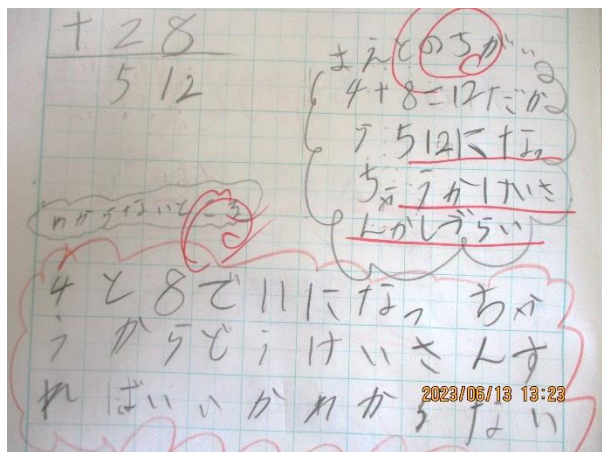 +28
512
まえとのちがい
4+8=12だか
ら512になっ
ちゃうかけいさ
んがしずらい
わからないところ
4と8で11になっちゃ
うからどうけいさんす
ればいいかわからない
2023/06/13 13:23